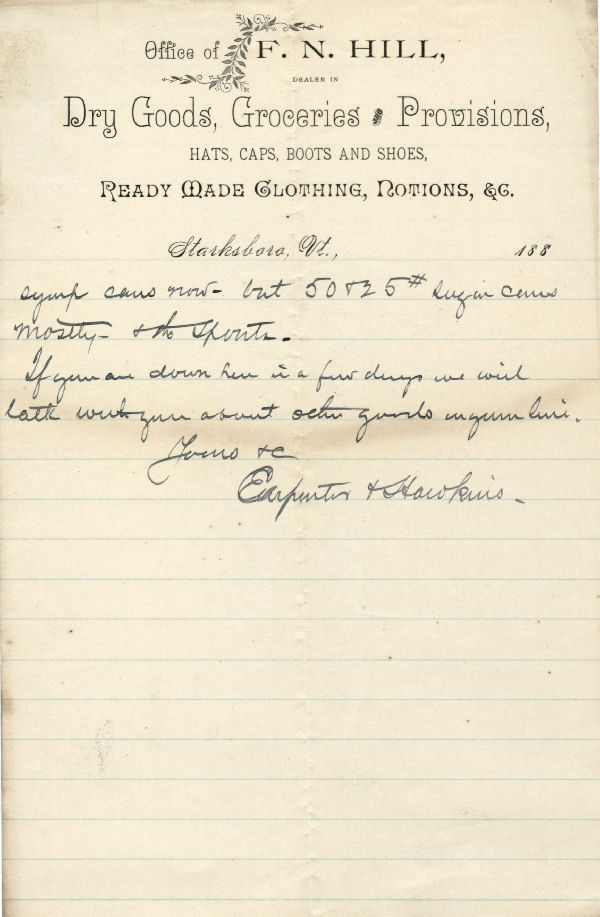 Office of F. N. HILL,
DEALER IN
Dry Goods, Groceries & Provisions,
HATS, CAPS, BOOTS AND SHOES,
READY MADE CLOTHING, NOTIONS, &C.
Starksboro, Vt., 188
syrup cans now - but 50 & 25# sugar cans
mostly - & the spouts.
If you are down here in a few days we will
talk with you about other goods in your line.
Yours &c
Carpenter & Hawkins -